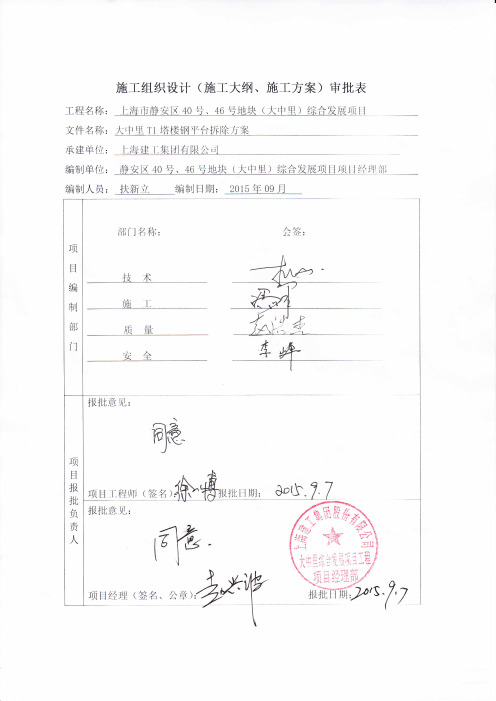 施工组织设计（施工大纲、施工方案）审批表
工程名称： 上海市静安区 40 号、46 号地块（大中里）综合发展项目
文件名称：大中里 T1 塔楼钢平台拆除方案
承建单位： 上海建工集团有限公司
编制单位： 静安区 40 号、46 号地块（大中里）综合发展项目项目经理部
编制人员： 扶新立 编制日期： 2015 年 09 月
项目编制部门
部门名称： 会签：
技 术
施 工
质 量
安 全 李峰
项目报批负责人
报批意见：
同意
项目工程师（签名） 报批日期： 2015.9.7
报批意见：
同意.
上海建工集团股份有限公司
大中里综合发展项目工程
项目经理部
项目经理（签名、公章）： 报批日期：2015.9.7